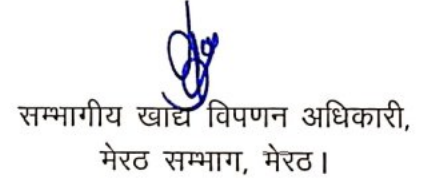 सम्भागीय खाद्य विपणन अधिकारी,
मेरठ सम्भाग, मेरठ।